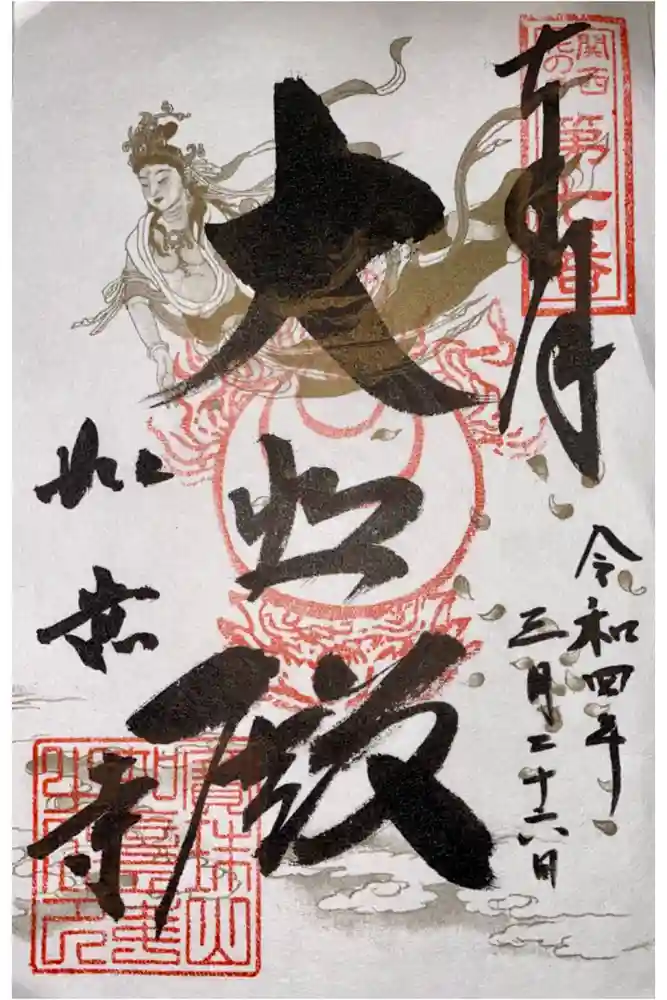 奉拝
関西
花の
第七番
令和四年
三月二十六日
大悲殿
如意寺
寳珠山